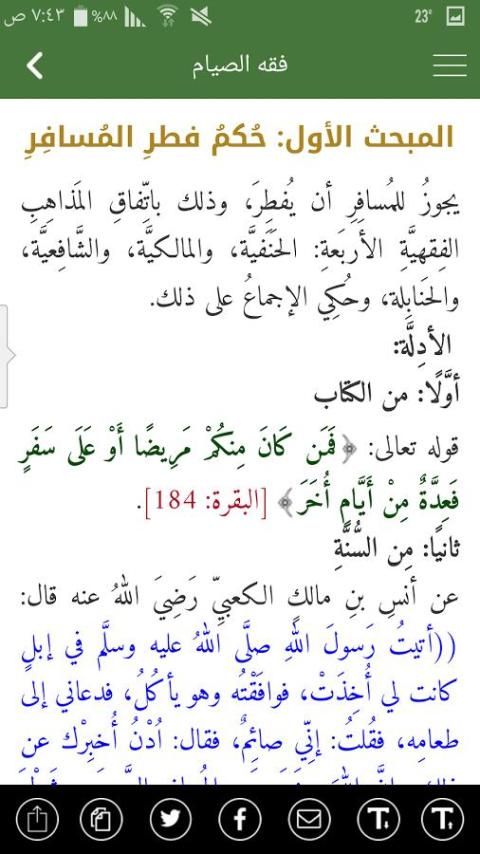 ٧:٤٣ ص ٨٨% 23°
فقه الصيام
المبحث الأول: حُكمُ فطرِ المُسافِرِ
يجوزُ للمُسافِرِ أن يُفطِرَ، وذلك باتِّفاقِ المَذاهِبِ
الفِقهيَّةِ الأربَعةِ: الحَنَفيَّة، والمالكيَّة، والشَّافِعيَّة،
والحَنابِلة، وحُكِي الإجماعُ على ذلك.
الأدِلَّة:
أوَّلًا: من الكتاب
قوله تعالى: ﴿فَمَن كَانَ مِنكُمْ مَرِيضًا أَوْ عَلَى سَفَرٍ
فَعِدَّةٌ مِنْ أَيَّامٍ أُخَرَ﴾ [البقرة: 184].
ثانيًا: مِن السُّنَّةِ
عن أنسِ بنِ مالكٍ الكعبيِّ رَضِيَ اللهُ عنه قال:
((أتيتُ رَسولَ اللهِ صلَّى اللهُ عليه وسلَّم في إبلٍ
كانت لي أُخِذَتْ، فوافَقْتُه وهو يأكُلُ، فدعاني إلى
طعامِه، فقُلتُ: إنِّي صائِمٌ، فقال: اُدْنُ أُخبِرْك عن